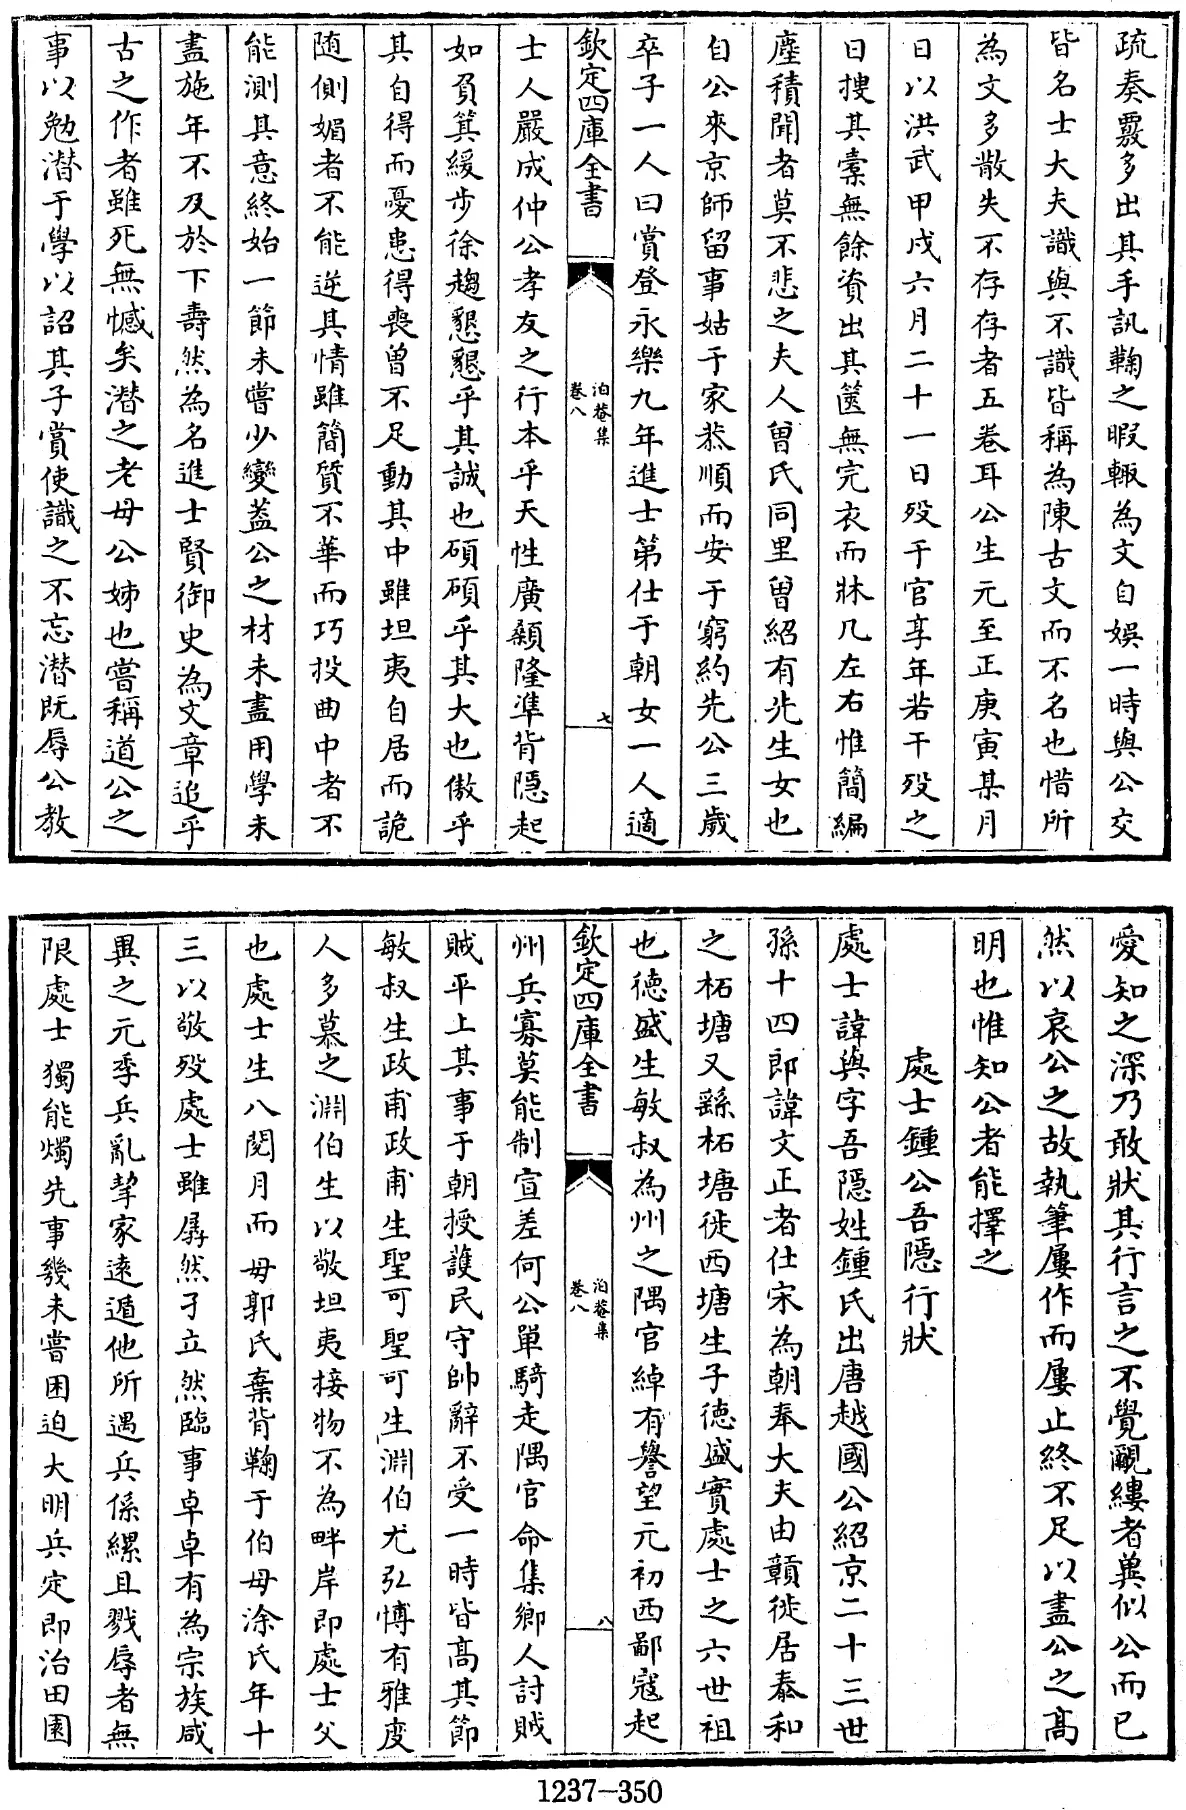 疏奏覈多出其手訊鞫之暇輙為文自娛一時與公交
皆名士大夫識與不識皆稱為陳古文而不名也惜所
為文多散失不存存者五卷耳公生元至正庚寅某月
日以洪武甲戌六月二十一日歿于官享年若干歿之
日搜其槖無餘資出其篋無完衣而牀几左右惟簡編
塵積聞者莫不悲之夫人曾氏同里曾紹有先生女也
自公來京師留事姑于家恭順而安于窮約先公三歲
卒子一人曰賞登永樂九年進士第仕于朝女一人適
欽定四庫全書
泊菴集
卷八
七
士人嚴成仲公孝友之行本乎天性廣顙隆準背隱起
如負箕緩步徐趨懇懇乎其誠也碩碩乎其大也傲乎
其自得而憂患得喪曾不足動其中雖坦夷自居而詭
随側媚者不能逆其情雖簡質不華而巧投曲中者不
能測其意終始一節未嘗少變蓋公之材未盡用學未
盡施年不及於下壽然為名進士賢御史為文章追乎
古之作者雖死無憾矣潜之老母公姊也嘗稱道公之
事以勉潜于學以詔其子賞使識之不忘潜既辱公教
愛知之深乃敢狀其行言之不覺覼縷者兾似公而已
然以哀公之故執筆屢作而屢止終不足以盡公之髙
明也惟知公者能擇之
處士鍾公吾隱行狀
處士諱與字吾隱姓鍾氏出唐越國公紹京二十三世
孫十四郎諱文正者仕宋為朝奉大夫由贛徙居泰和
之柘塘又繇柘塘徙西塘生子德盛實處士之六世祖
也德盛生敏叔為州之隅官綽有譽望元初西鄙寇起
欽定四庫全書
泊菴集
卷八
八
州兵寡莫能制宣差何公單騎走隅官命集鄉人討賊
賊平上其事于朝授護民守帥辭不受一時皆髙其節
敏叔生政甫政甫生聖可聖可生淵伯尤弘愽有雅度
人多慕之淵伯生以敬坦夷接物不為畔岸即處士父
也處士生八閱月而母郭氏棄背鞠于伯母涂氏年十
三以敬歿處士雖孱然孑立然臨事卓卓有為宗族咸
異之元季兵亂挈家逺遁他所遇兵係縲且戮辱者無
限處士獨能燭先事幾未嘗困迫大明兵定即治田園
1237-350